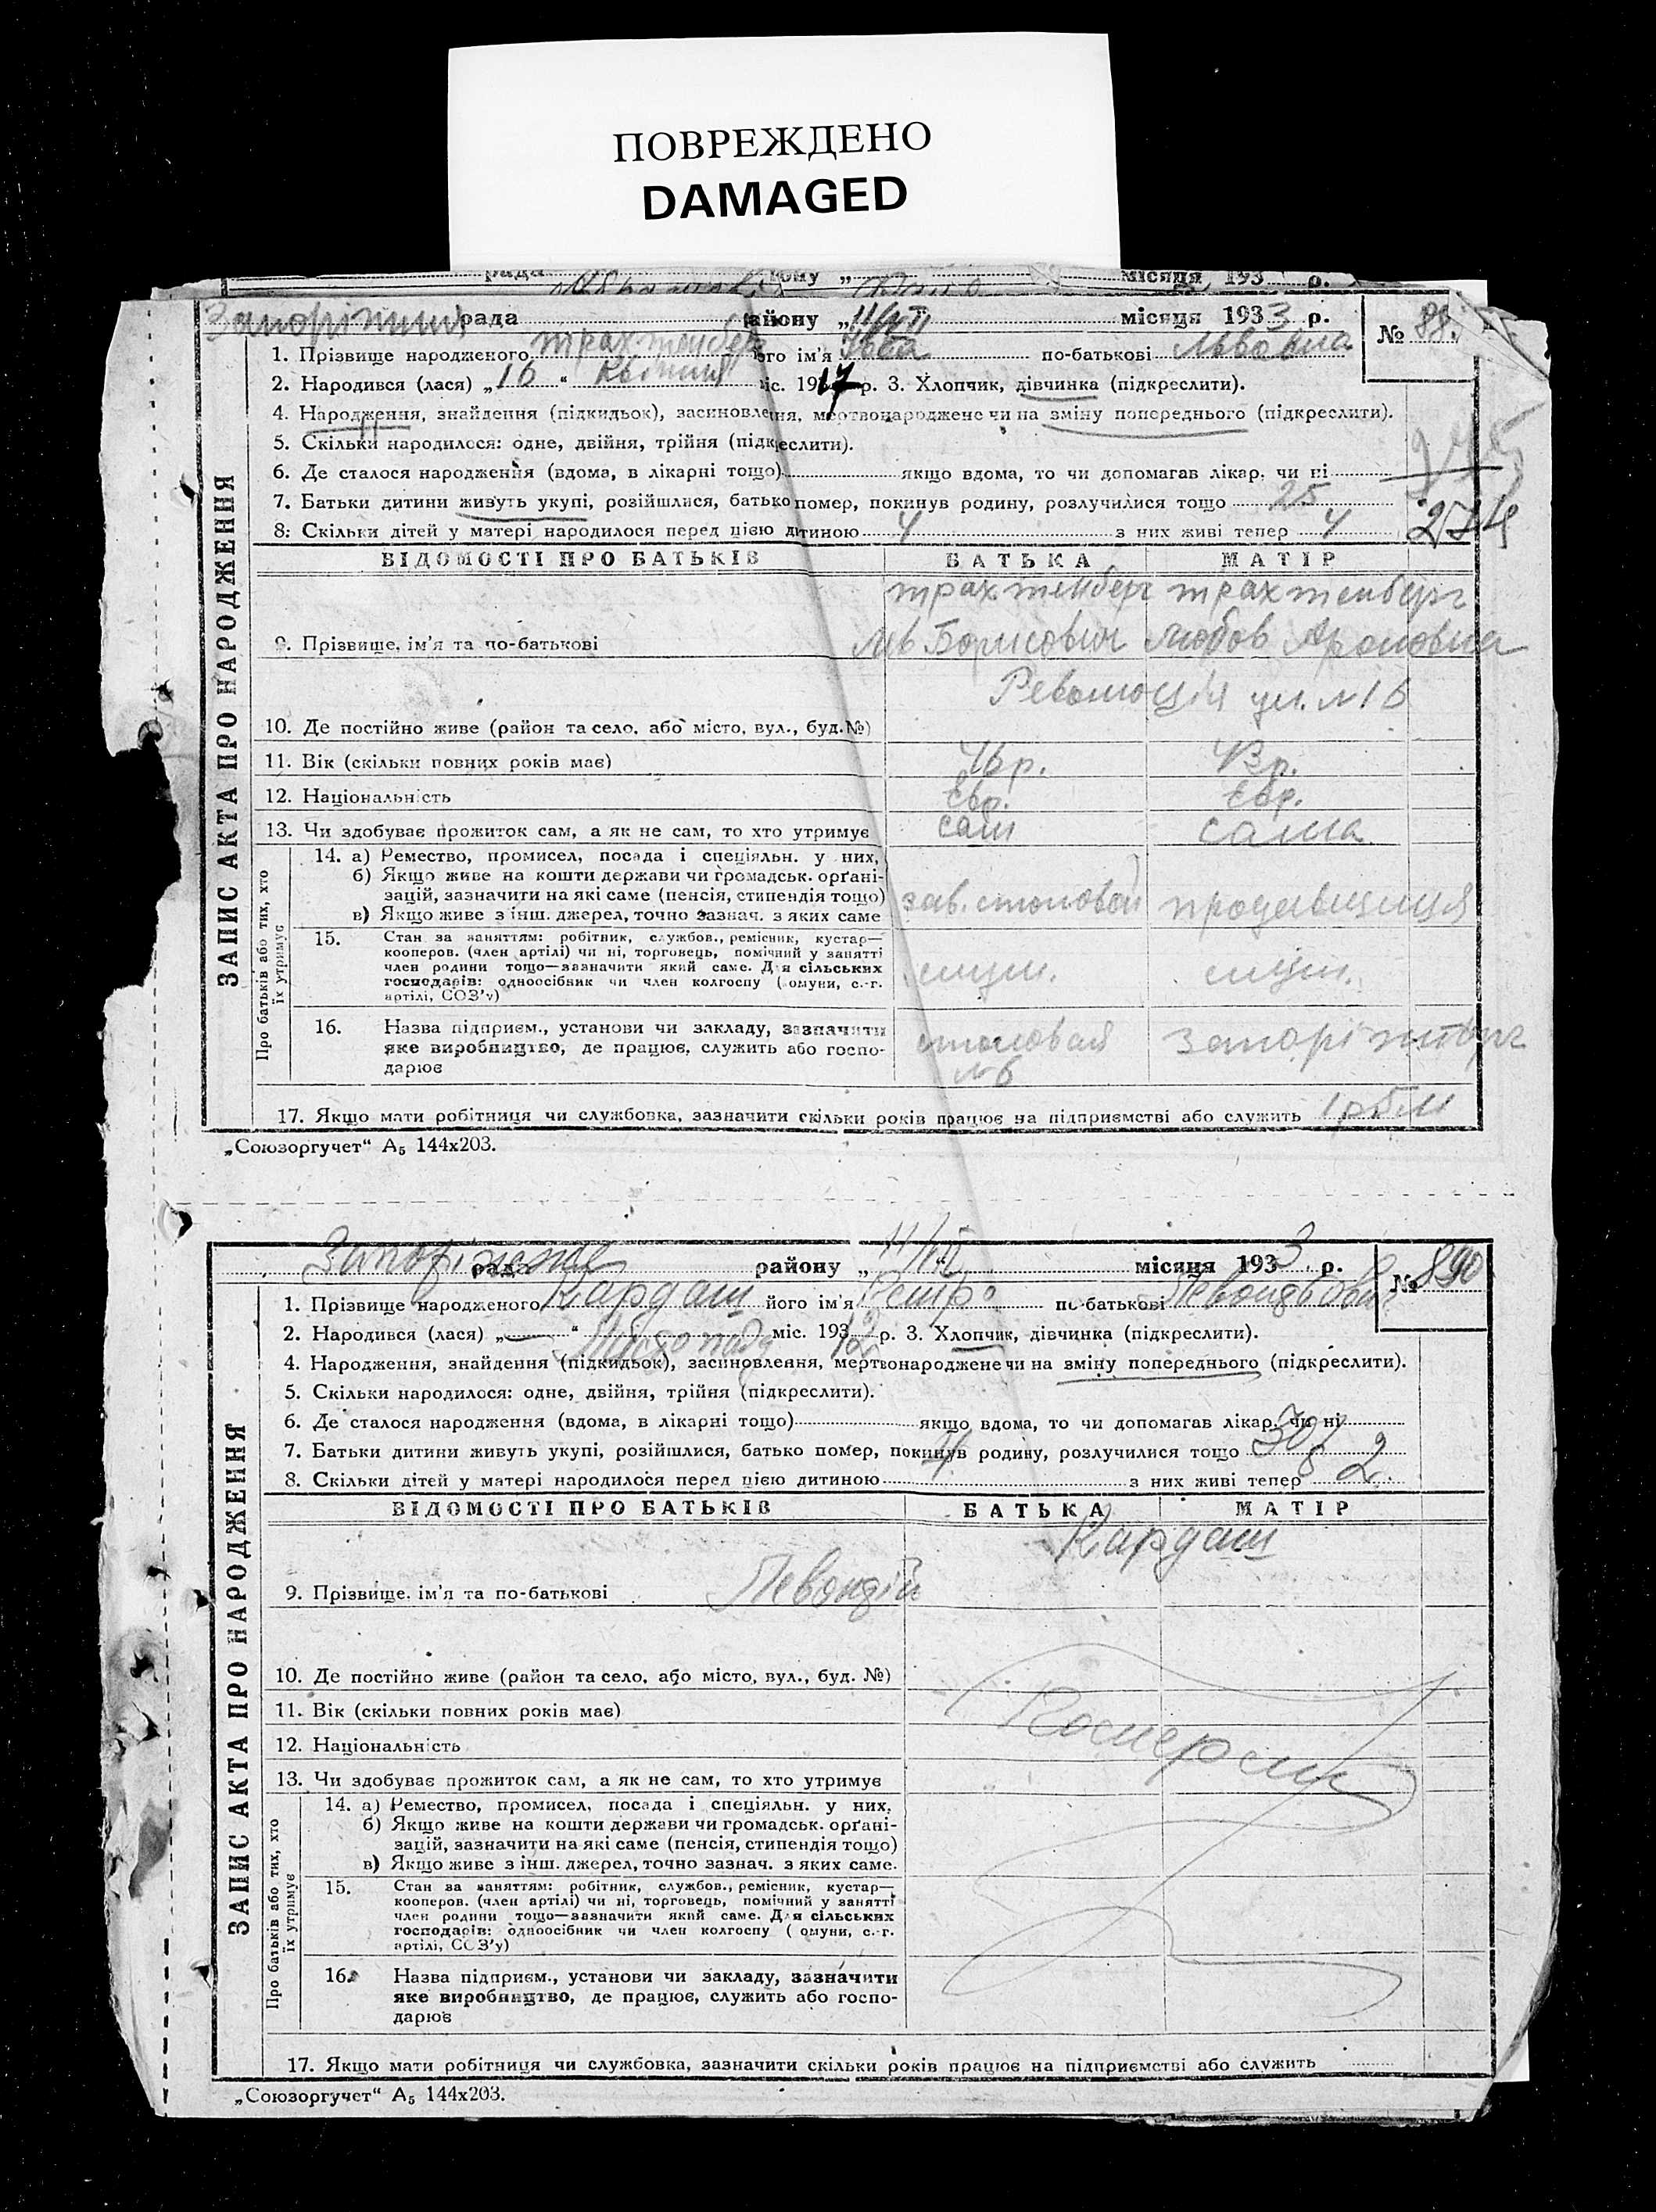 ПОВРЕЖДЕНО
DAMAGED
рада йону „ місяця 193 р.
рада айону „11/VII місяця 1933 р. №
1. Прізвище народженого Трахтенберг його ім'я по-батькові Львовна
2. Народився (лася) „16“ квітня міс. 1917 р. 3. Хлопчик, дівчинка (підкреслити).
4. Народження, знайдення (підкидьок), засиновлення, мертвонароджене чи на зміну попереднього (підкреслити).
5. Скільки народилося: одне, двійня, трійня (підкреслити).
6. Де сталося народження (вдома, в лікарні тощо) якщо вдома, то чи допомагав лікар, чи ні
7. Батьки дитини живуть укупі, розійшлися, батько помер, покинув родину, розлучилися тощо 25
8. Скільки дітей у матері народилося перед цією дитиною 4 з них живі тепер 4
ЗАПИС АКТА ПРО НАРОДЖЕННЯ
ВІДОМОСТІ ПРО БАТЬКІВ БАТЬКА МАТІР
Трахтенберг Трахтенберг
9. Прізвище, ім'я та по-батькові Лів Борисович Любов Ароновна
Революція ул. №16
10. Де постійно живе (район та село, або місто, вул., буд. №)
11. Вік (скільки повних років має) 46 р. 43 р.
12. Національність Євр. Євр.
13. Чи здобуває прожиток сам, а як не сам, то хто утримує сам сама
Про батьків або тих, хто їх утримує
14. а) Ремество, промисел, посада і спеціяльн. у них,
б) Якщо живе на кошти держави чи громадськ. орґані-
зацій, зазначити на які саме (пенсія, стипендія тощо) зав. столовой продавщиця
в) Якщо живе з інш. джерел, точно зазнач. з яких саме
15. Стан за заняттям: робітник, службов., ремісник, кустар—
кооперов. (член артілі) чи ні, торговець, помічний у занятті
член родини тощо—зазначити який саме. Для сільських служ. служ.
господарів: одноосібник чи член колгоспу (омуни, с.-г.
артілі, СОЗ'у)
16. Назва підприєм., установи чи закладу, зазначити
яке виробництво, де працює, служить або госпо- столовая
дарює №6
17. Якщо мати робітниця чи службовка, зазначити скільки років працює на підприємстві або служить
„Союзоргучет“ А5 144х203.
Запоріжжє рада району „11/VII місяця 1933 р. № 890
1. Прізвище народженого Кардаш його ім'я Петро по-батькові
2. Народився (лася) „—“ Листопада міс. 1912 р. 3. Хлопчик, дівчинка (підкреслити).
4. Народження, знайдення (підкидьок), засиновлення, мертвонароджене чи на зміну попереднього (підкреслити).
5. Скільки народилося: одне, двійня, трійня (підкреслити).
6. Де сталося народження (вдома, в лікарні тощо) якщо вдома, то чи допомагав лікар, чи ні
7. Батьки дитини живуть укупі, розійшлися, батько помер, покинув родину, розлучилися тощо
8. Скільки дітей у матері народилося перед цією дитиною 4 з них живі тепер 2
ЗАПИС АКТА ПРО НАРОДЖЕННЯ
ВІДОМОСТІ ПРО БАТЬКІВ БАТЬКА МАТІР
Кардаш
9. Прізвище, ім'я та по-батькові
10. Де постійно живе (район та село, або місто, вул., буд. №)
11. Вік (скільки повних років має)
12. Національність
13. Чи здобуває прожиток сам, а як не сам, то хто утримує
Про батьків або тих, хто їх утримує
14. а) Ремество, промисел, посада і спеціяльн. у них,
б) Якщо живе на кошти держави чи громадськ. орґані-
зацій, зазначити на які саме (пенсія, стипендія тощо)
в) Якщо живе з інш. джерел, точно зазнач. з яких саме.
15. Стан за заняттям: робітник, службов., ремісник, кустар—
кооперов. (член артілі) чи ні, торговець, помічний у занятті
член родини тощо—зазначити який саме. Для сільських
господарів: одноосібник чи член колгоспу (омуни, с.-г.
артілі, СОЗ'у)
16. Назва підприєм., установи чи закладу, зазначити
яке виробництво, де працює, служить або госпо-
дарює
17. Якщо мати робітниця чи службовка, зазначити скільки років працює на підприємстві або служить
„Союзоргучет“ А5 144х203.